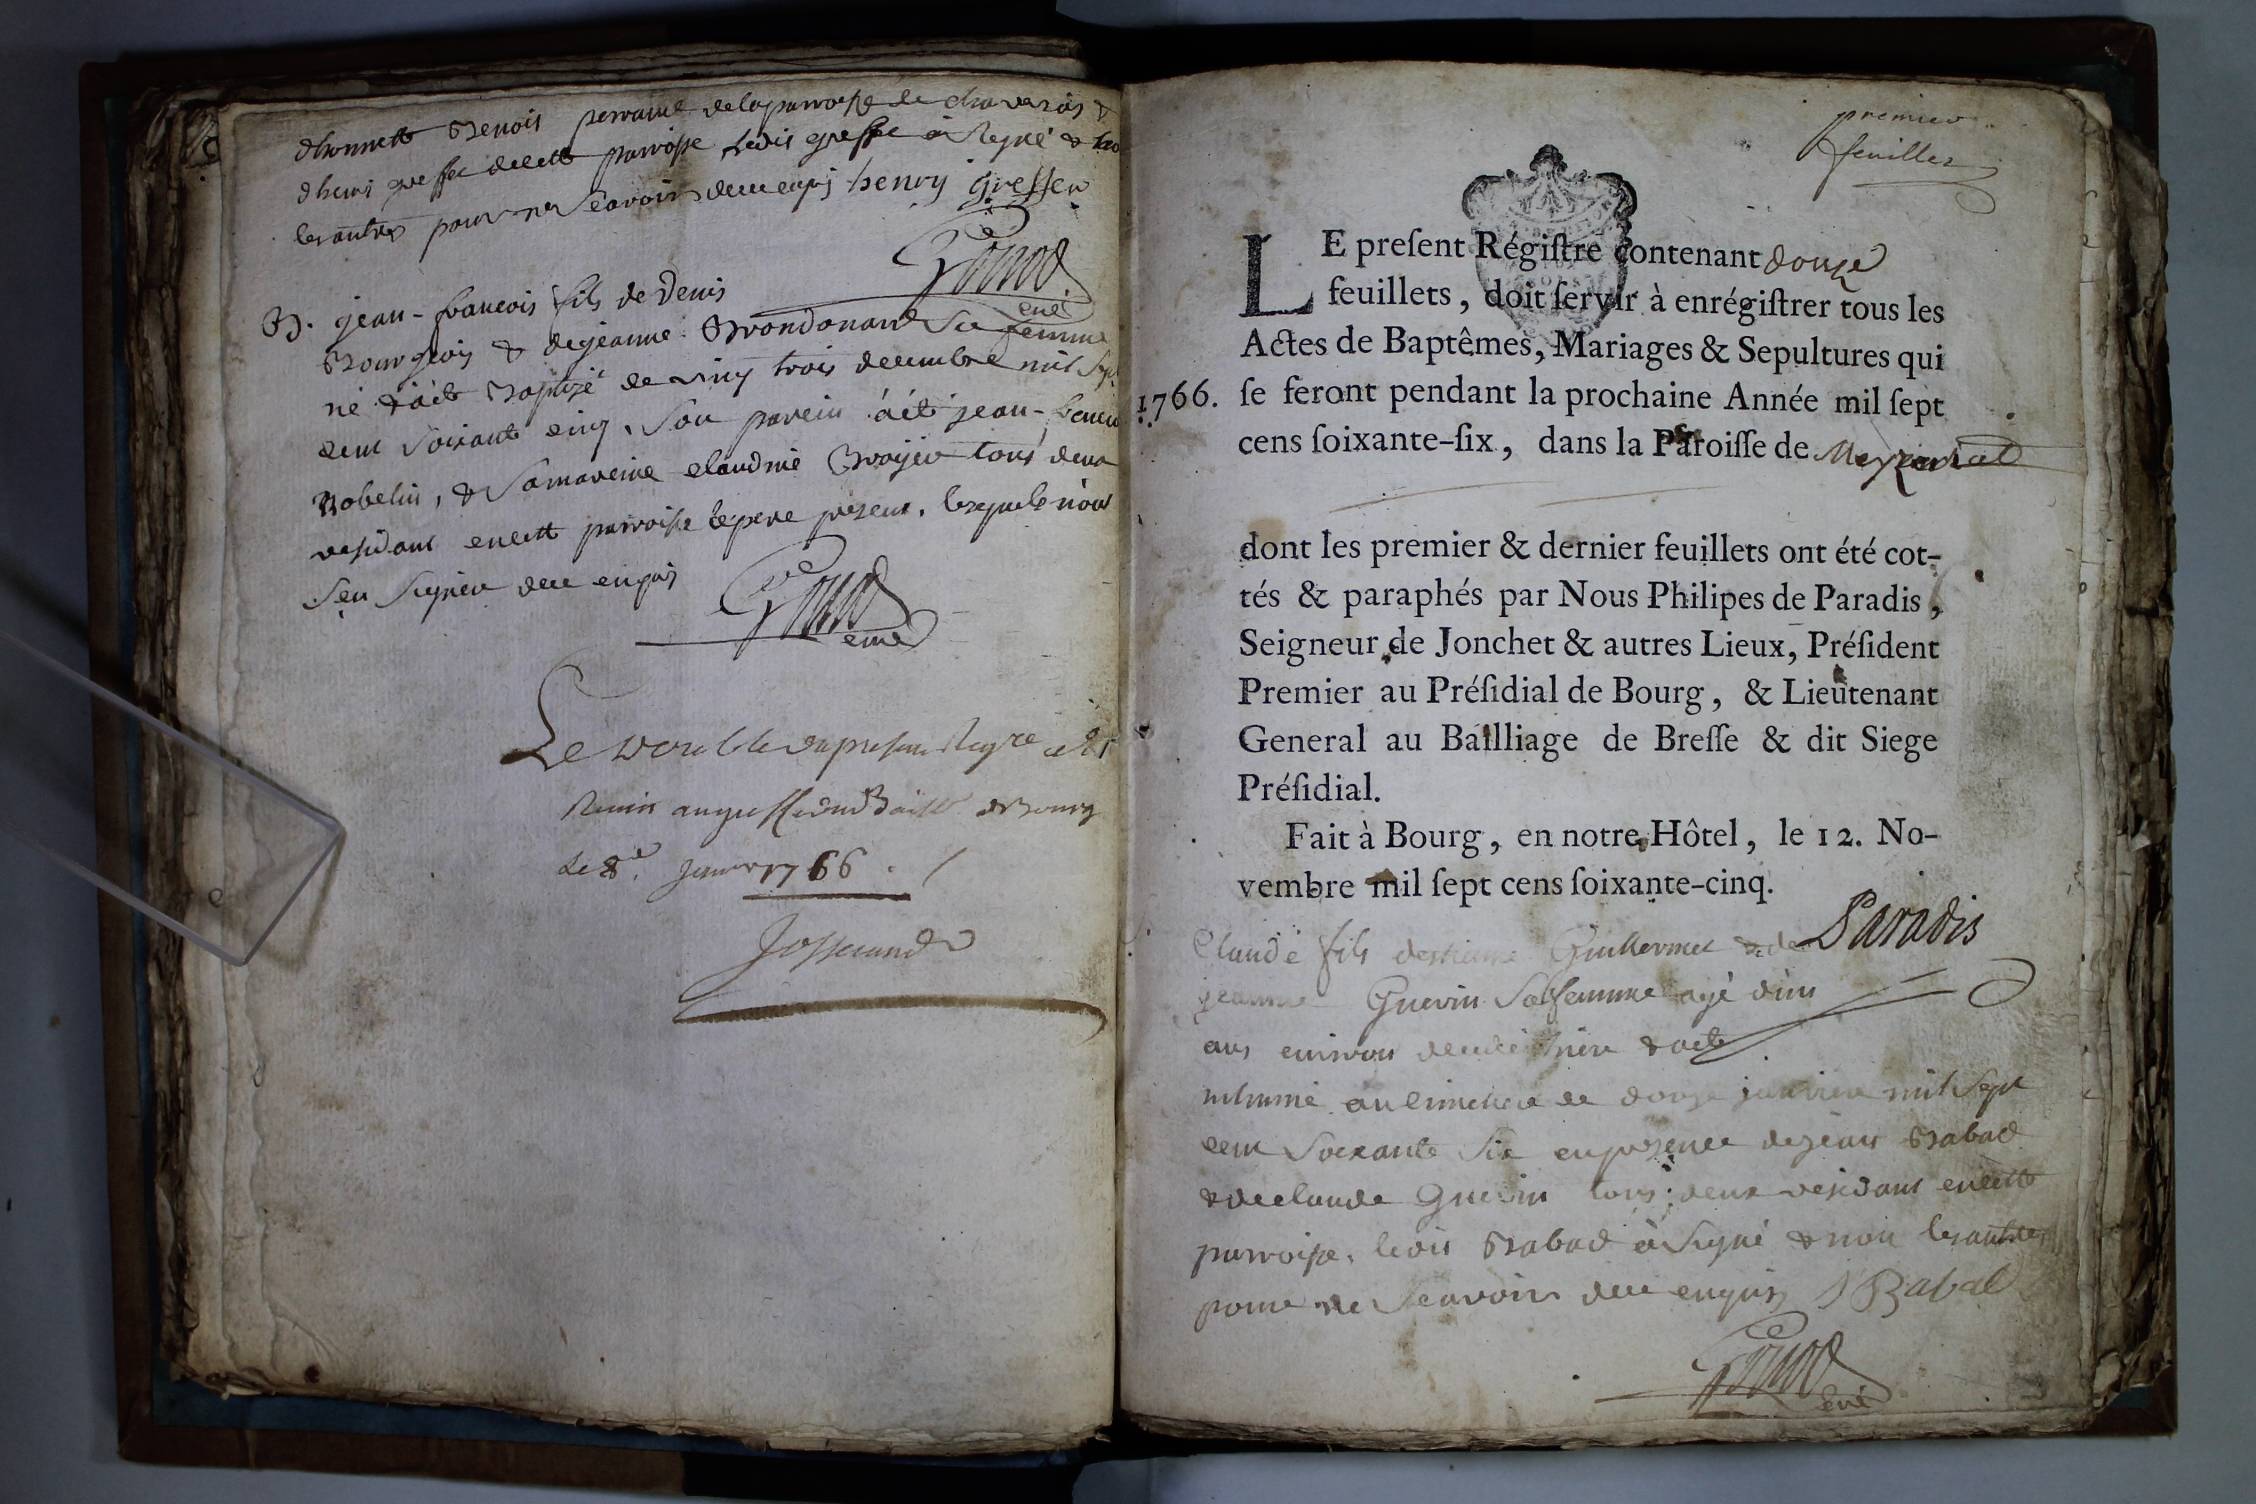 dhonnett Benoit perraud de la parroisse de chaveiriat &
dhenri gresse de cett parroisse ledit gresse à signé & non
les autres pour ne scavoir de ce enquis henry gresser
Gonod
curé
B. jean-francois fils de Denis
Bourgeois & de jeanne Brondonard sa femme
né & a été Baptizé le vingt trois decembre mil sept
cent soixante cinq, son parrein a été jean-francois
Robelin, & sa marreine claudine Broyer tous deux
residant en cett parroisse le pere present, lesquels n'ont
sçu signer de ce enquis
Gonod
curé
Le double du present Regre a été
Remis au greffe du Baille de Bourg
Le 8e. Janvr 1766.
Josserand
premier
feuillet
LE preſent Régiſtre contenant douze
feuillets, doit ſervir à enrégiſtrer tous les
Actes de Baptêmes, Mariages & Sepultures qui
1766. ſe feront pendant la prochaine Année mil ſept
cens ſoixante-ſix, dans la Paroiſſe de Mezeriat
dont les premier & dernier feuillets ont été cot-
tés & paraphés par Nous Philipes de Paradis,
Seigneur de Jonchet & autres Lieux, Préſident
Premier au Préſidial de Bourg, & Lieutenant
General au Bailliage de Breſſe & dit Siege
Préſidial.
Fait à Bourg, en notre Hôtel, le 12. No-
vembre mil ſept cens ſoixante-cinq.
Paradis
Claude fils destienne Guillermet & de
jeanne Guerin sa femme agé d'un
ans environ decedé hier & a été
inhumé au cimetiere le douze janvier mil sept
cent soixante six en presence de jean Babad
& de claude Guerin tous deux residant en cett
parroisse, ledit Babad à signé & non les autres
pour ne scavoir de ce enquis J Babad
Gonod
curé